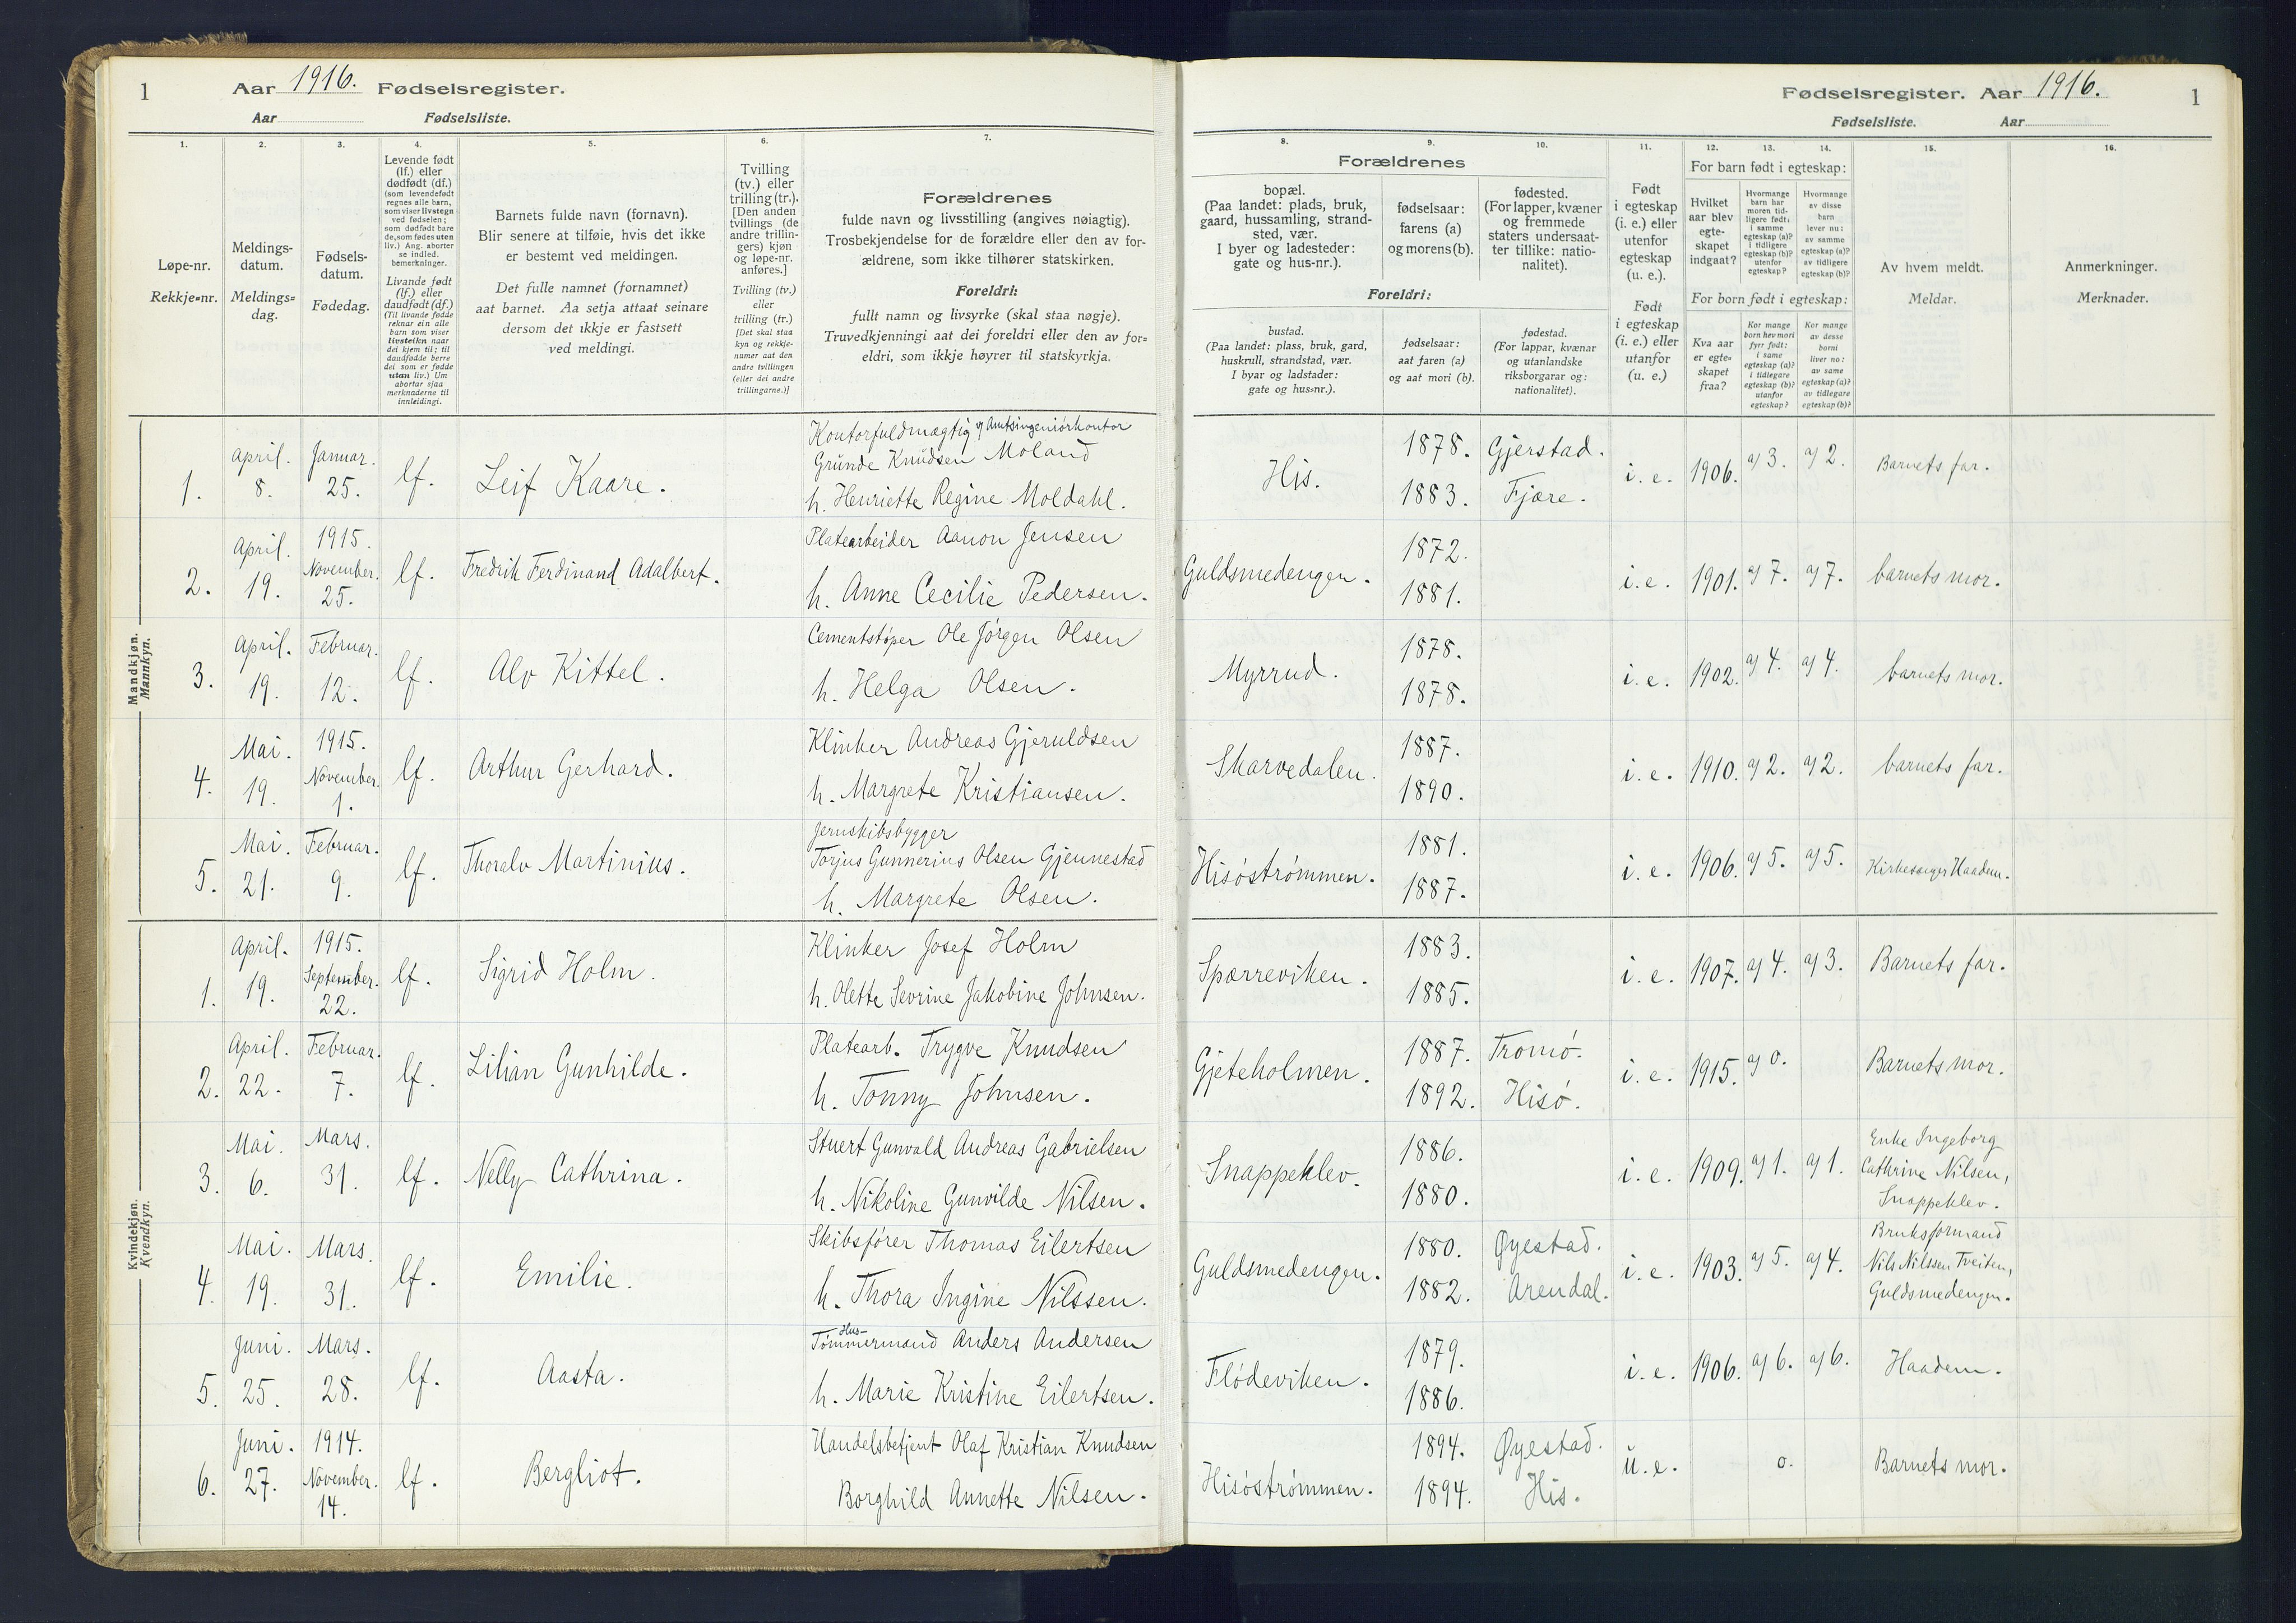 1
Aar 1916. Fødselsregister.
Aar Fødselsliste.
1. 2. 3. 4. 5. 6. 7.
Løpe-nr.
Rekkje=nr.
Meldings-
datum.
Meldings=
dag.
Fødsels-
datum.
Fødedag.
Levende født
(lf.) eller
dødfødt (df.)
(som levendefødt
regnes alle barn,
som viser livstegn
ved fødselen;
som dødfødt bare
de, som fødes uten
liv.) Ang. aborter
se indled.
bemerkninger.
Livande født
(lf.) eller
daudfødt (df.)
(Til livande fødde
reknar ein alle
barn som viser
livsteikn naar
dei kjem til; til
daudfødde berre
dei som er fødde
utan liv.) Um
abortar sjaa
merknaderne til
innleidingi.
Barnets fulde navn (fornavn).
Blir senere at tilføie, hvis det ikke
er bestemt ved meldingen.
Det fulle namnet (fornamnet)
aat barnet. Aa setja attaat seinare
dersom det ikkje er fastsett
ved meldingi.
Tvilling
(tv.) eller
trilling (tr.).
[Den anden
tvillings (de
andre trillin-
gers) kjøn
og løpe-nr.
anføres.]
Tvilling (tv.)
eller
trilling (tr.)
[Det skal staa
kyn og rekkje-
numer aat den
andre tvillingen
(eller dei andre
trillingarne.)]
Forældrenes
fulde navn og livsstilling (angives nøiagtig).
Trosbekjendelse for de forældre eller den av for-
ældrene, som ikke tilhører statskirken.
Foreldri:
fullt namn og livsyrke (skal staa nøgje).
Truvedkjenningi aat dei foreldri eller den av for=
eldri, som ikkje høyrer til statskyrkja.
Mandkjøn.
Mannkyn.
1. April. 8. Januar. 25. lf. Leif Kaare.
Kontorfuldmægtig v/ Amtsingeniørkontor
Grunde Knudsen Moland
h. Henriette Regine Moldahl.
2. April. 19. 1915. November. 25. lf. Fredrik Ferdinand Adalbert.
Platearbeider Aanon Jensen
h. Anne Cecilie Pedersen.
3. April. 19. Februar. 12. lf. Alv Kittel.
Cementstøper Ole Jørgen Olsen
h. Helga Olsen.
4. Mai. 19. 1915. November. 1. lf. Arthur Gerhard.
Klinker Andreas Gjeruldsen
h. Margrete Kristiansen.
5. Mai. 21. Februar. 9. lf. Thoralv Martinius.
Jernskibsbygger
Torjus Gunnerius Olsen Gjennestad
h. Margrete Olsen.
Kvindekjøn.
Kvendkyn.
1. April. 19. 1915. September. 22. lf. Sigrid Holm.
Klinker Josef Holm
h. Olette Sevrine Jakobine Johnsen.
2. April. 22. Februar. 7. lf. Lilian Gunhilde.
Platearb. Trygve Knudsen
h. Tonny Johnsen.
3. Mai. 6. Mars. 31. lf. Nelly Cathrina.
Stuert Gunvald Andreas Gabrielsen
h. Nikoline Gunvilde Nilsen.
4. Mai. 19. Mars. 31. lf. Emilie.
Skibsfører Thomas Eilertsen
h. Thora Ingine Nilssen.
5. Juni. 25. Mars. 28. lf. Aasta.
Hus-
Tømmermand Anders Andersen
h. Marie Kristine Eilertsen.
6. Juni. 27. 1914. November. 14. lf. Bergliot.
Handelsbetjent Olaf Kristian Knudsen
Borghild Annette Nilsen.
Fødselsregister. Aar 1916. 1
Fødselsliste. Aar
8. 9. 10. 11. 12. 13. 14. 15. 16.
Forældrenes
bopæl.
(Paa landet: plads, bruk,
gaard, hussamling, strand-
sted, vær.
I byer og ladesteder:
gate og hus-nr.).
fødselsaar:
farens (a)
og morens (b).
fødested.
(For lapper, kvæner
og fremmede
staters undersaat-
ter tillike: natio-
nalitet).
Foreldri:
bustad.
(Paa landet: plass, bruk, gard,
huskrull, strandstad, vær.
I byar og ladstader:
gate og hus=nr.).
fødselsaar:
aat faren (a)
og aat mori (b).
fødestad.
(For lappar, kvænar
og utanlandske
riksborgarar og:
nationalitet).
Født
i egteskap
(i. e.) eller
utenfor
egteskap
(u. e.).
Født
i egteskap
(i. e.) eller
utanfor
(u. e.)
For barn født i egteskap:
Hvilket
aar blev
egte-
skapet
indgaat?
Hvormange
barn har
moren tid-
ligere født:
i samme
egteskap (a)?
i tidligere
egteskap (b)?
utenfor
egteskap?
Hvormange
av disse
barn
lever nu:
av samme
egteskap (a)?
av tidligere
egteskap (b)?
For born født i egteskap:
Kva aar
er egte=
skapet
fraa?
Kor mange
born hev mori
fyrr født:
i same
egteskap (a)?
i tidlegare
egteskap (b)?
utanfor
egteskap?
Kor mange
av desse
borni
liver no:
av same
egteskap (a)?
av tidlegare
egteskap (b)?
Av hvem meldt.
Meldar.
Anmerkninger.
Merknader.
His. 1878. 1883. Gjerstad. Fjære. i. e. 1906. a) 3. a) 2. Barnets far.
Guldsmedengen. 1872. 1881. i. e. 1901. a) 7. a) 7. barnets mor.
Myrrud. 1878. 1878. i. e. 1902. a) 4. a) 4. barnets mor.
Skarvedalen. 1887. 1890. i. e. 1910. a) 2. a) 2. barnets far.
Hisøstrømmen. 1881. 1887. i. e. 1906. a) 5. a) 5. Kirkesanger Haadem.
Spærreviken. 1883. 1885. i. e. 1907. a) 4. a) 3. Barnets far.
Gjeteholmen. 1887. 1892. Tromø. Hisø. i. e. 1915. a) 0. Barnets mor.
Snappeklev. 1886. 1880. i. e. 1909. a) 1. a) 1. Enke Ingeborg
Cathrine Nilsen,
Snappeklev.
Guldsmedengen. 1880. 1882. Øyestad. Arendal. i. e. 1903. a) 5. a) 4. Bruksformand
Nils Nilssen Tveiten,
Guldsmedengen.
Flødeviken. 1879. 1886. i. e. 1906. a) 6. a) 6. Haadem.
Hisøstrømmen. 1894. 1894. Øyestad. His. u. e. 0. Barnets mor.